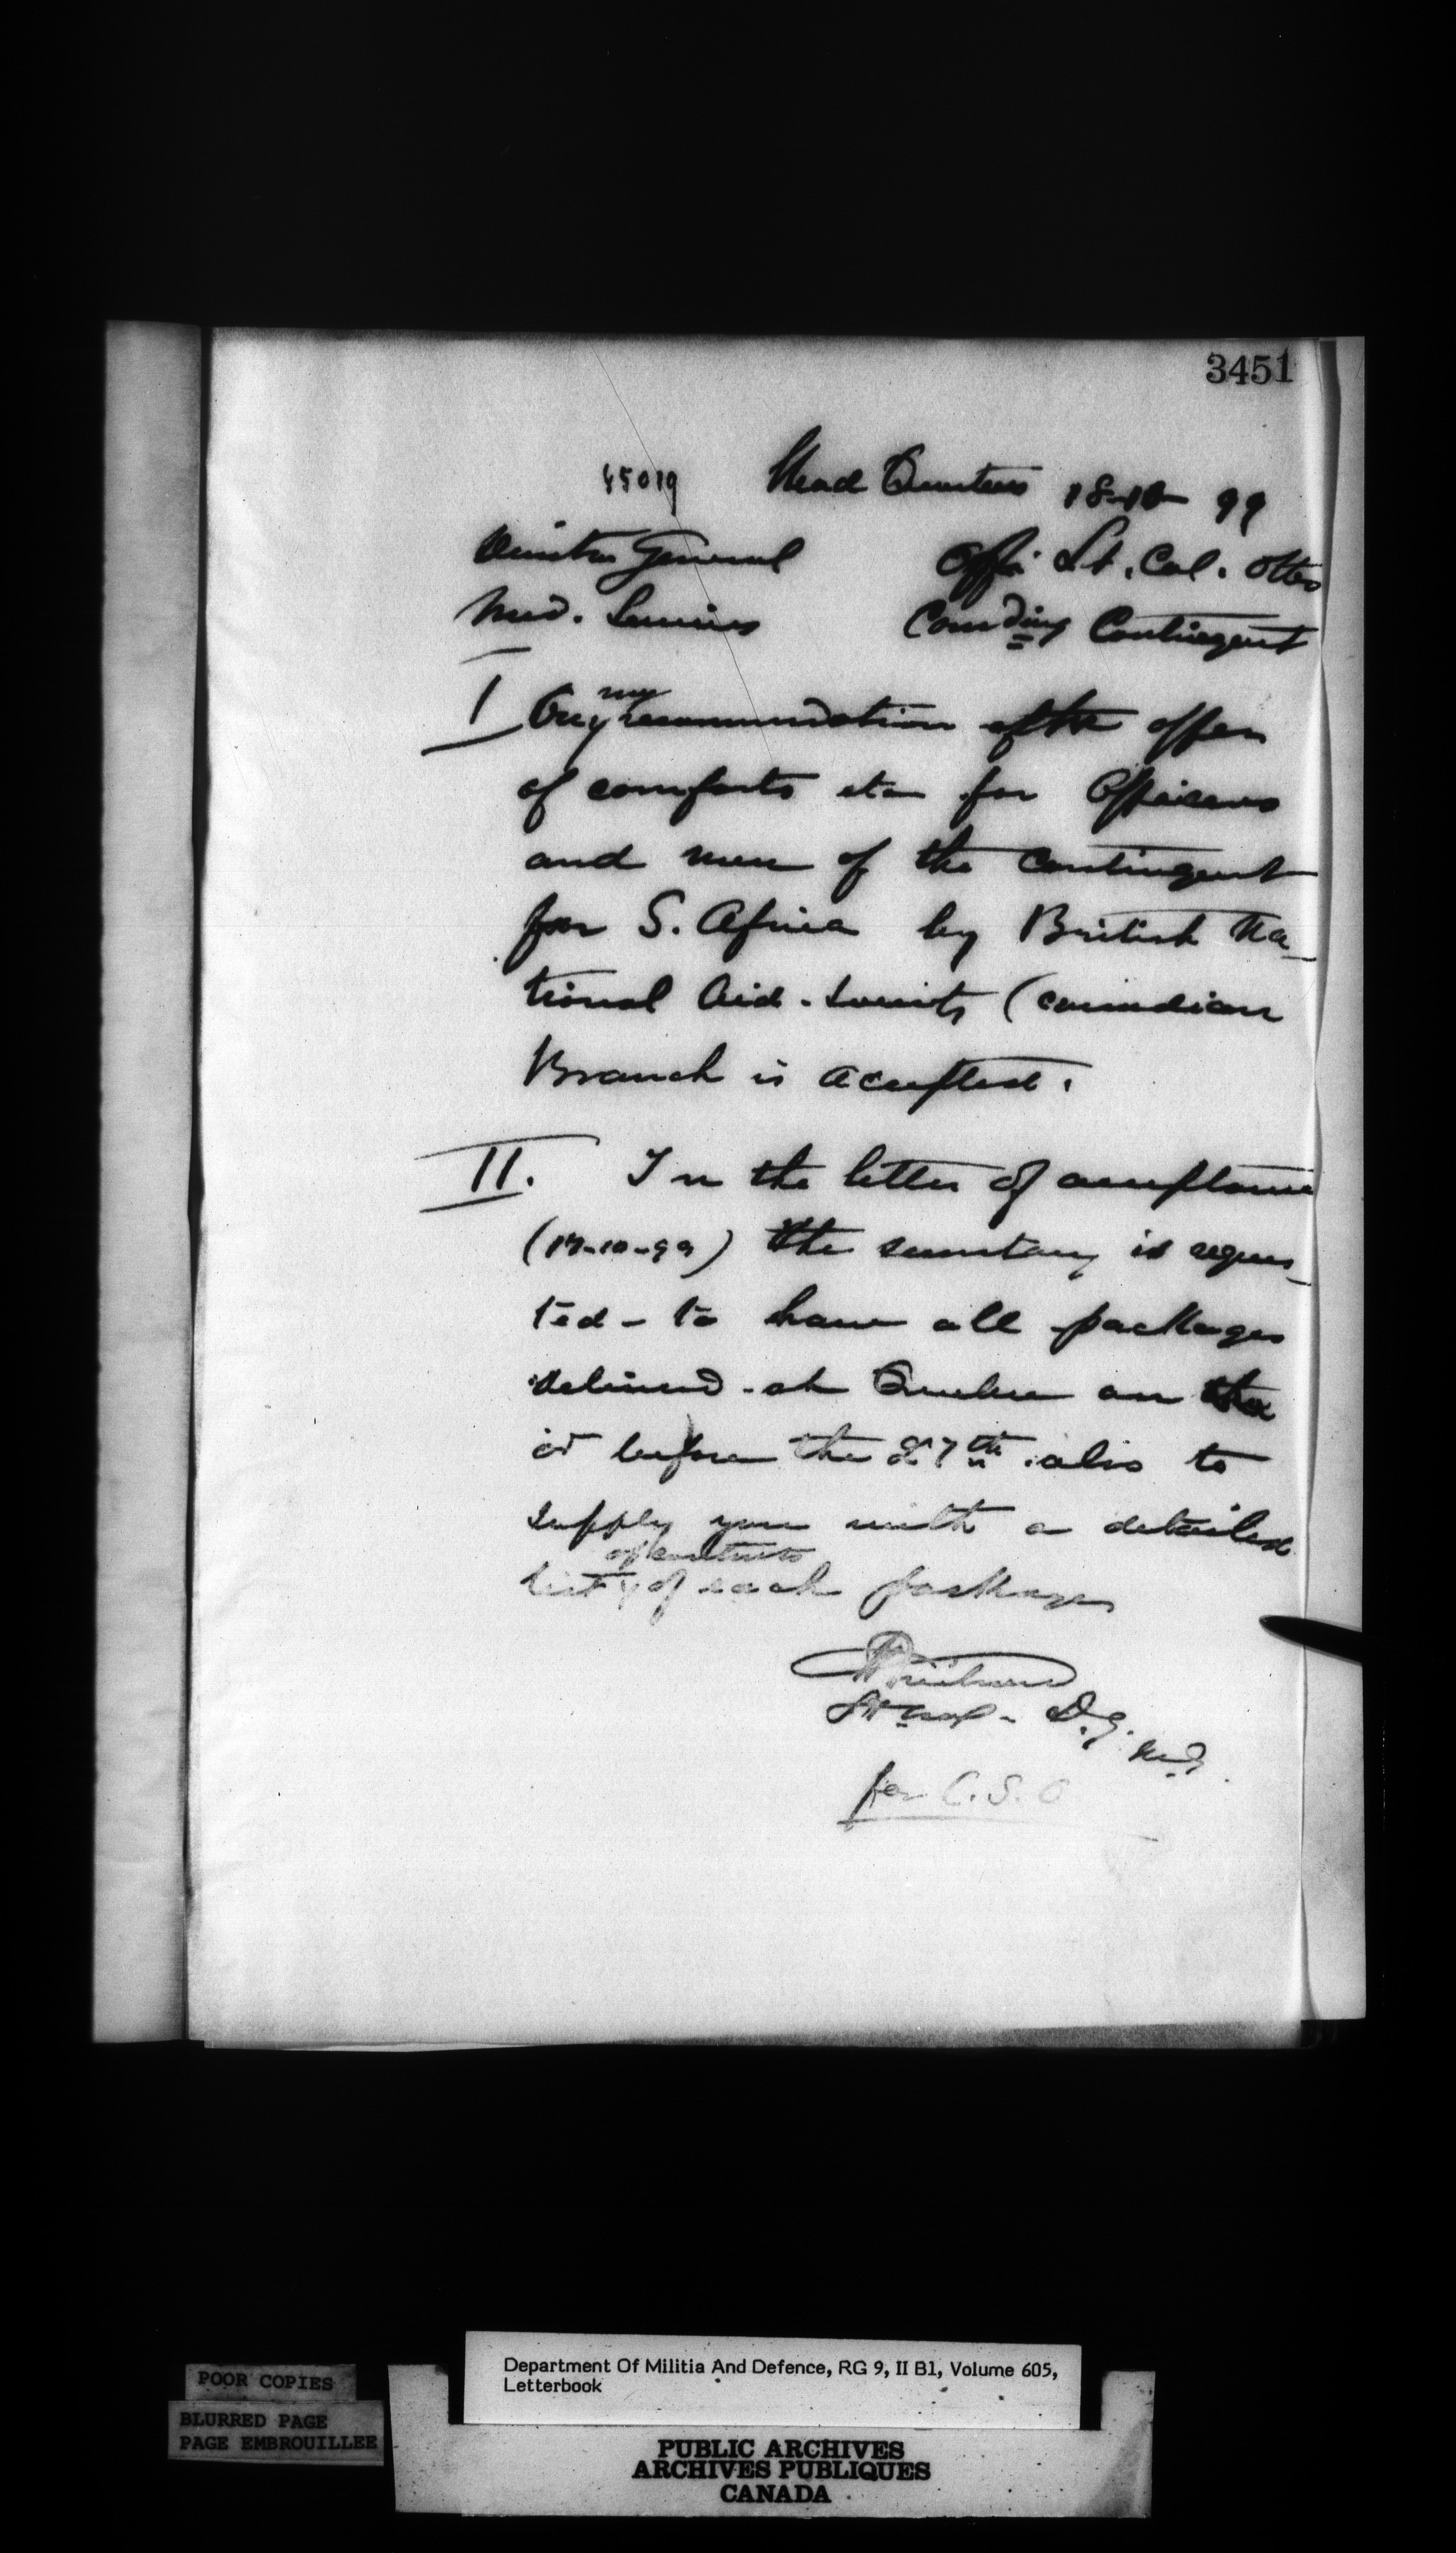 3451
45019 Head Quarters 18-10-99
Director General Lt. Col. Otter
Med. Services Comdding Contingent
I On my recommendation the offer
of comforts etc for Officers
and men of the Contingent
for S. Africa by British Na-
tional Aid. Society (Canadian
Branch is accepted.
II. In the letter of acceptance
(17-10-99) the secretary is reques-
ted - to have all packages
delivered at Quebec on
or before the 27th also to
supply you with a detailed
list of contents of each package
Lt Col - D.G.
M.S.
for C.S.O
Department Of Militia And Defence, RG 9, II B1, Volume 605,
Letterbook
POOR COPIES
BLURRED PAGE
PAGE EMBROUILLEE
PUBLIC ARCHIVES
ARCHIVES PUBLIQUES
CANADA